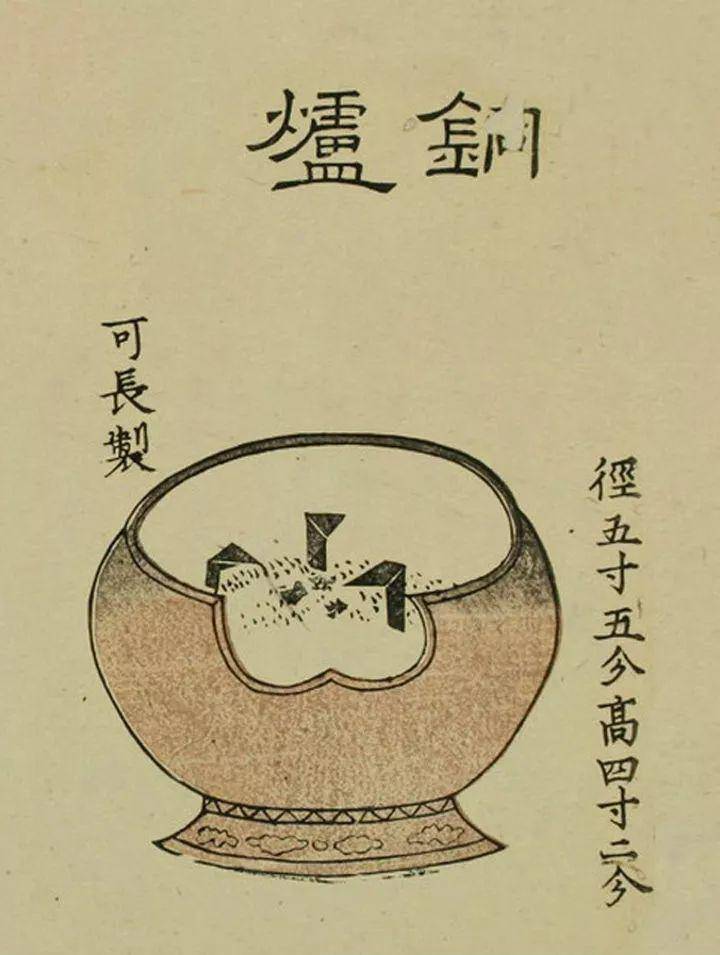 銅爐
徑五寸五分高四寸二分
可長製